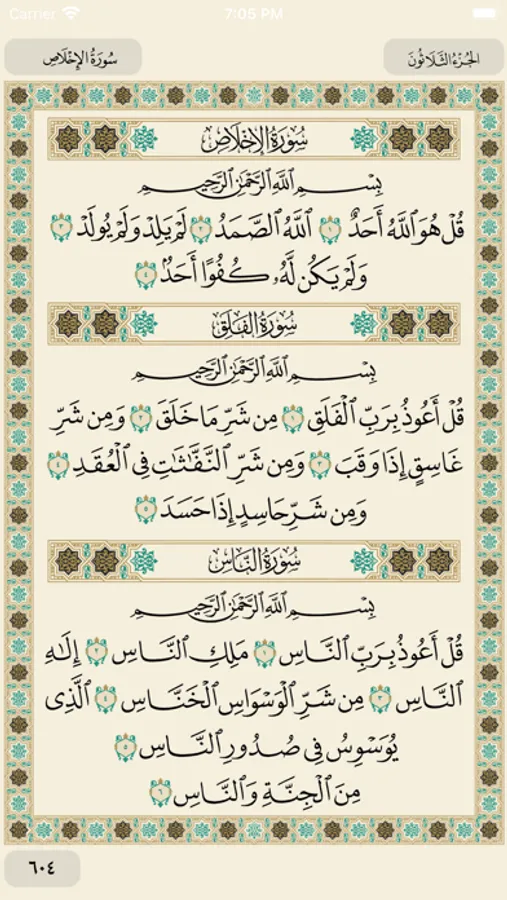 Carrier 7:05 PM
سُورَةُ الإِخْلَاصِ الجُزْءُ الثَّلَاثُونَ
سُورَةُ الإِخْلَاصِ
بِسْمِ ٱللَّهِ ٱلرَّحْمَٰنِ ٱلرَّحِيمِ
قُلْ هُوَ ٱللَّهُ أَحَدٌ ١ ٱللَّهُ ٱلصَّمَدُ ٢ لَمْ يَلِدْ وَلَمْ يُولَدْ ٣
وَلَمْ يَكُن لَّهُۥ كُفُوًا أَحَدٌۢ ٤
سُورَةُ الفَلَقِ
بِسْمِ ٱللَّهِ ٱلرَّحْمَٰنِ ٱلرَّحِيمِ
قُلْ أَعُوذُ بِرَبِّ ٱلْفَلَقِ ١ مِن شَرِّ مَا خَلَقَ ٢ وَمِن شَرِّ
غَاسِقٍ إِذَا وَقَبَ ٣ وَمِن شَرِّ ٱلنَّفَّٰثَٰتِ فِى ٱلْعُقَدِ ٤
وَمِن شَرِّ حَاسِدٍ إِذَا حَسَدَ ٥
سُورَةُ النَّاسِ
بِسْمِ ٱللَّهِ ٱلرَّحْمَٰنِ ٱلرَّحِيمِ
قُلْ أَعُوذُ بِرَبِّ ٱلنَّاسِ ١ مَلِكِ ٱلنَّاسِ ٢ إِلَٰهِ
ٱلنَّاسِ ٣ مِن شَرِّ ٱلْوَسْوَاسِ ٱلْخَنَّاسِ ٤ ٱلَّذِى
يُوَسْوِسُ فِى صُدُورِ ٱلنَّاسِ ٥
مِنَ ٱلْجِنَّةِ وَٱلنَّاسِ ٦
٦٠٤